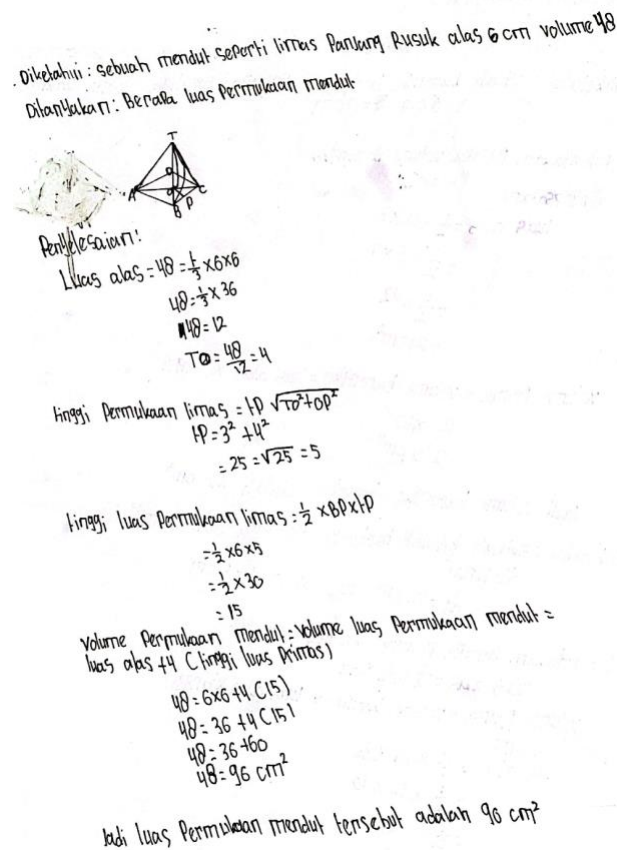 Diketahui : sebuah mendut seperti limas Panjang Rusuk alas 6 cm volume 48
Ditanyakan : Berapa luas Permukaan mendut
T
D
A O C
B P
Penyelesaian :
Luas alas = 48 = 1/3 × 6×6
48 = 1/3 × 36
48 = 12
TO = 48/12 = 4
tinggi Permukaan limas = tP √TO²+OP²
tP = 3² + 4²
= 25 = √25 = 5
tinggi luas Permukaan limas = 1/2 × BP × tP
= 1/2 × 6 × 5
= 1/2 × 30
= 15
Volume Permukaan mendut = Volume luas Permukaan mendut =
luas alas + 4 (tinggi luas Primas)
48 = 6×6 + 4 (15)
48 = 36 + 4 (15)
48 = 36 + 60
48 = 96 cm²
Jadi luas Permukaan mendut tersebut adalah 96 cm²